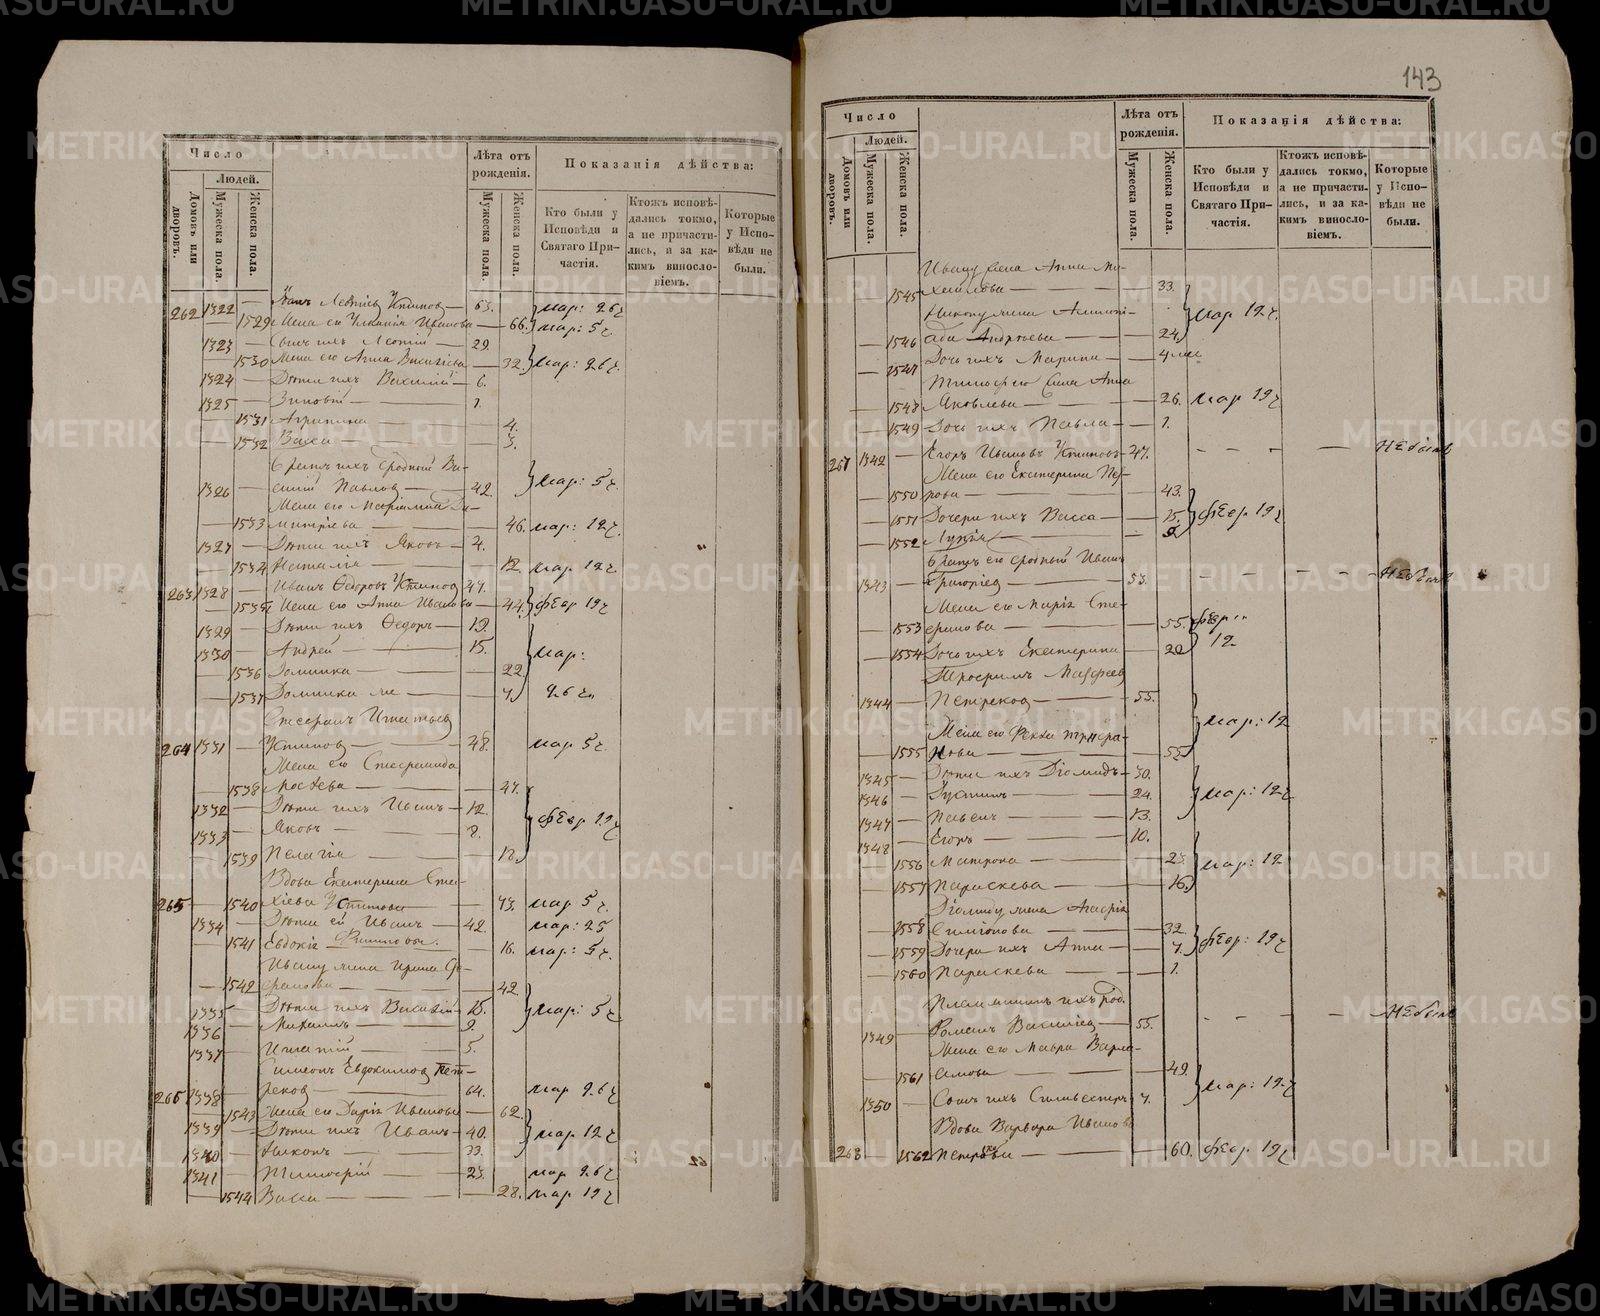 143
Число
Людей.
Домовъ или дворовъ.
Мужеска пола.
Женска пола.
Лѣта отъ рожденія.
Мужеска пола.
Женска пола.
Показанія дѣйства:
Кто были у Исповѣди и Святаго Причастія.
Ктожъ исповѣдались токмо, а не причастились, и за какимъ винословіемъ.
Которые у Исповѣди не были.
262 1322 — Леонтіев Устинов — 63. мар: 26 ч
— 1529 Жена его Иванова — 66. мар: 5 ч.
1323 — Сынъ ихъ Леонтій — 29.
— 1530 Жена его Анна Васильева — 32. мар: 26 ч.
1324 — Дѣти ихъ Василій — 6.
1325 — Зиновій — 1.
— 1531 Агрипина — 4.
— 1532 Васса — 3.
Братъ ихъ сродный Ва-
1326 — силій Павлов — 42. мар: 5 ч.
Жена его Маріамна Ди-
— 1533 митріева — 46. мар: 12 ч.
1327 — Дѣти ихъ Яковъ — 4.
— 1534 Наталія — 12. мар 12 ч.
263 1328 — Иванъ Ѳедоров Устинов 47.
— 1535 Жена его Анна Иванова — 44. февр 19 ч
1329 — Дѣти ихъ Ѳедоръ — 19.
1330 — Андрей — 15. мар:
— 1536 Домника — 22
— 1537 Домника — 7. 26 ч.
Стефанъ Игнатьев
264 1331 — Устинов — 48. мар 5 ч.
Жена его Стефанида
— 1538 — 47.
1332 — Дѣти ихъ Иванъ — 12.
1333 — Яковъ — 8. февр 19 ч
— 1539 Пелагія
Вдова Екатерина Ста-
265 — 1540 хіева Устинова — 73. мар 5 ч.
1334 — Дѣти ей Иванъ — 42. мар: 25
— 1541 Евдокія — 16. мар: 5 ч.
Ивану жена Ирина
— 1542 — 42.
1335 — Дѣти ихъ Василій — 15. мар: 5 ч
1336 — Михаилъ — 9.
1337 — Игнатій — 5.
Симеонъ Евдокимов Пет-
266 1338 — реков — 64. мар 26 ч
— 1543 Жена его Дарія Иванова — 62.
1339 — Дѣти ихъ Иванъ — 40. мар 12 ч
1340 — Никонъ — 33.
1341 — Тимофей — 23. мар 26 ч
— 1544 Васса — 28. мар 19 ч
Число
Людей.
Домовъ или дворовъ.
Мужеска пола.
Женска пола.
Лѣта отъ рожденія.
Мужеска пола.
Женска пола.
Показанія дѣйства:
Кто были у Исповѣди и Святаго Причастія.
Ктожъ исповѣдались токмо, а не причастились, и за какимъ винословіемъ.
Которые у Исповѣди не были.
Ивану жена Анна Ми-
— 1545 хаилова — 33.
Никону жена мар 12 ч.
— 1546 Андреева — 24.
— 1547 Дочь ихъ Марина — 4 мес
Тимофею жена Анна
— 1548 Яковлева — 26. мар 19 ч
— 1549 Дочь ихъ Павла — 1.
267 1342 — Егоръ Иванов Устинов 47. — Не былъ
Жена его Екатерина Пет-
— 1550 рова — 43.
— 1551 Дочери ихъ Васса — 15. февр 19 ч
— 1552 Лукія — 9.
Братъ его сродный Иванъ
1343 — Григоріев — 53. — Не былъ
Жена его Марія Сте-
— 1553 фанова — 55. февр
— 1554 Дочь ихъ Екатерина — 20 12
Трофимъ Матфеев
1344 — Петреков — 55. мар: 12
Жена его Фекла Трифа-
— 1555 нова — 55
1345 — Дѣти ихъ Діомидъ — 30.
1346 — Іустинъ — 24. мар: 12 ч
1347 — Павелъ — 13.
1348 — Егоръ — 10.
— 1556 Матрона — 23. мар: 12
— 1557 Параскева — 16.
Діомиду жена Агафія
— 1558 Симіонова — 32.
— 1559 Дочери ихъ Анна — 7. февр: 19 ч
— 1560 Параскева — 1.
Племянникъ ихъ род.
1349 — Романъ Васильев — 55. — Не былъ
Жена его Мавра Варла-
— 1561 амова — 49.
1350 — Сынъ ихъ Сильвестръ 7. мар: 19 ч
Вдова Варвара Иванова
268 — 1562 — 60. февр 19 ч
METRIKI.GASO-URAL.RU